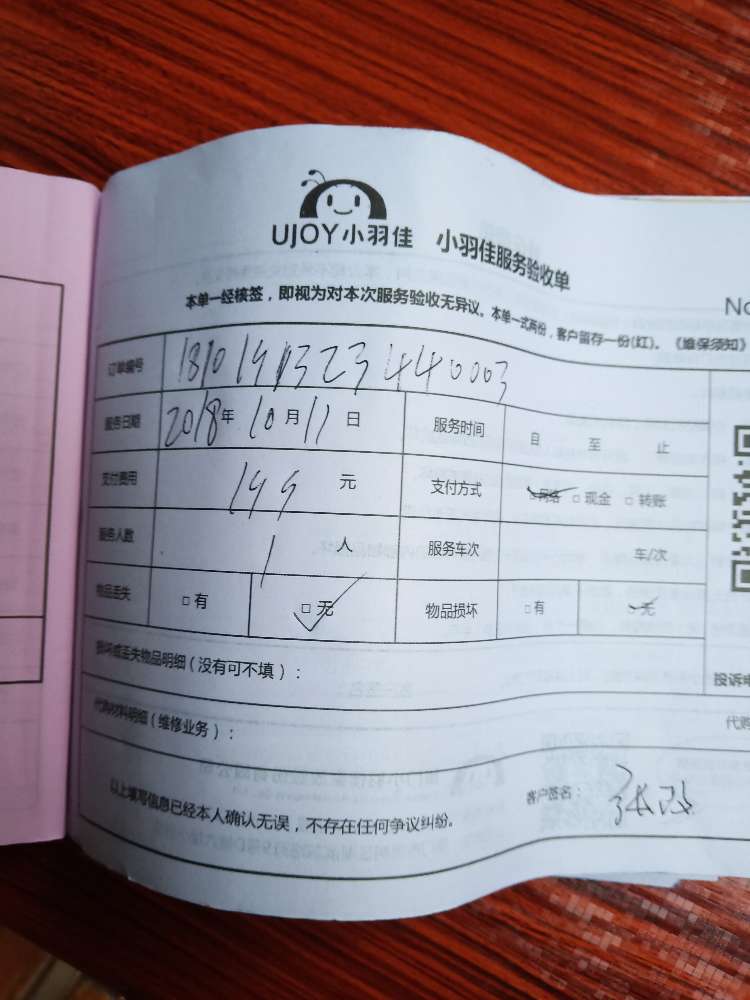 UJOY小羽佳 小羽佳服务验收单
No
本单一经核签，即视为对本次服务验收无异议。本单一式两份，客户留存一份(红)。《维保须知》
订单编号 1810191323440003
服务日期 2018年 10月 11日 服务时间 自 至 止
支付费用 199 元 支付方式 网络 □ 现金 □ 转账
服务人数 1 人 服务车次 车/次
物品丢失 □ 有 □ 无 物品损坏 □有 无
损坏或丢失物品明细（没有可不填）：
投诉电
代购材料明细（维修业务）：
代购
以上填写信息已经本人确认无误，不存在任何争议纠纷。
客户签名：